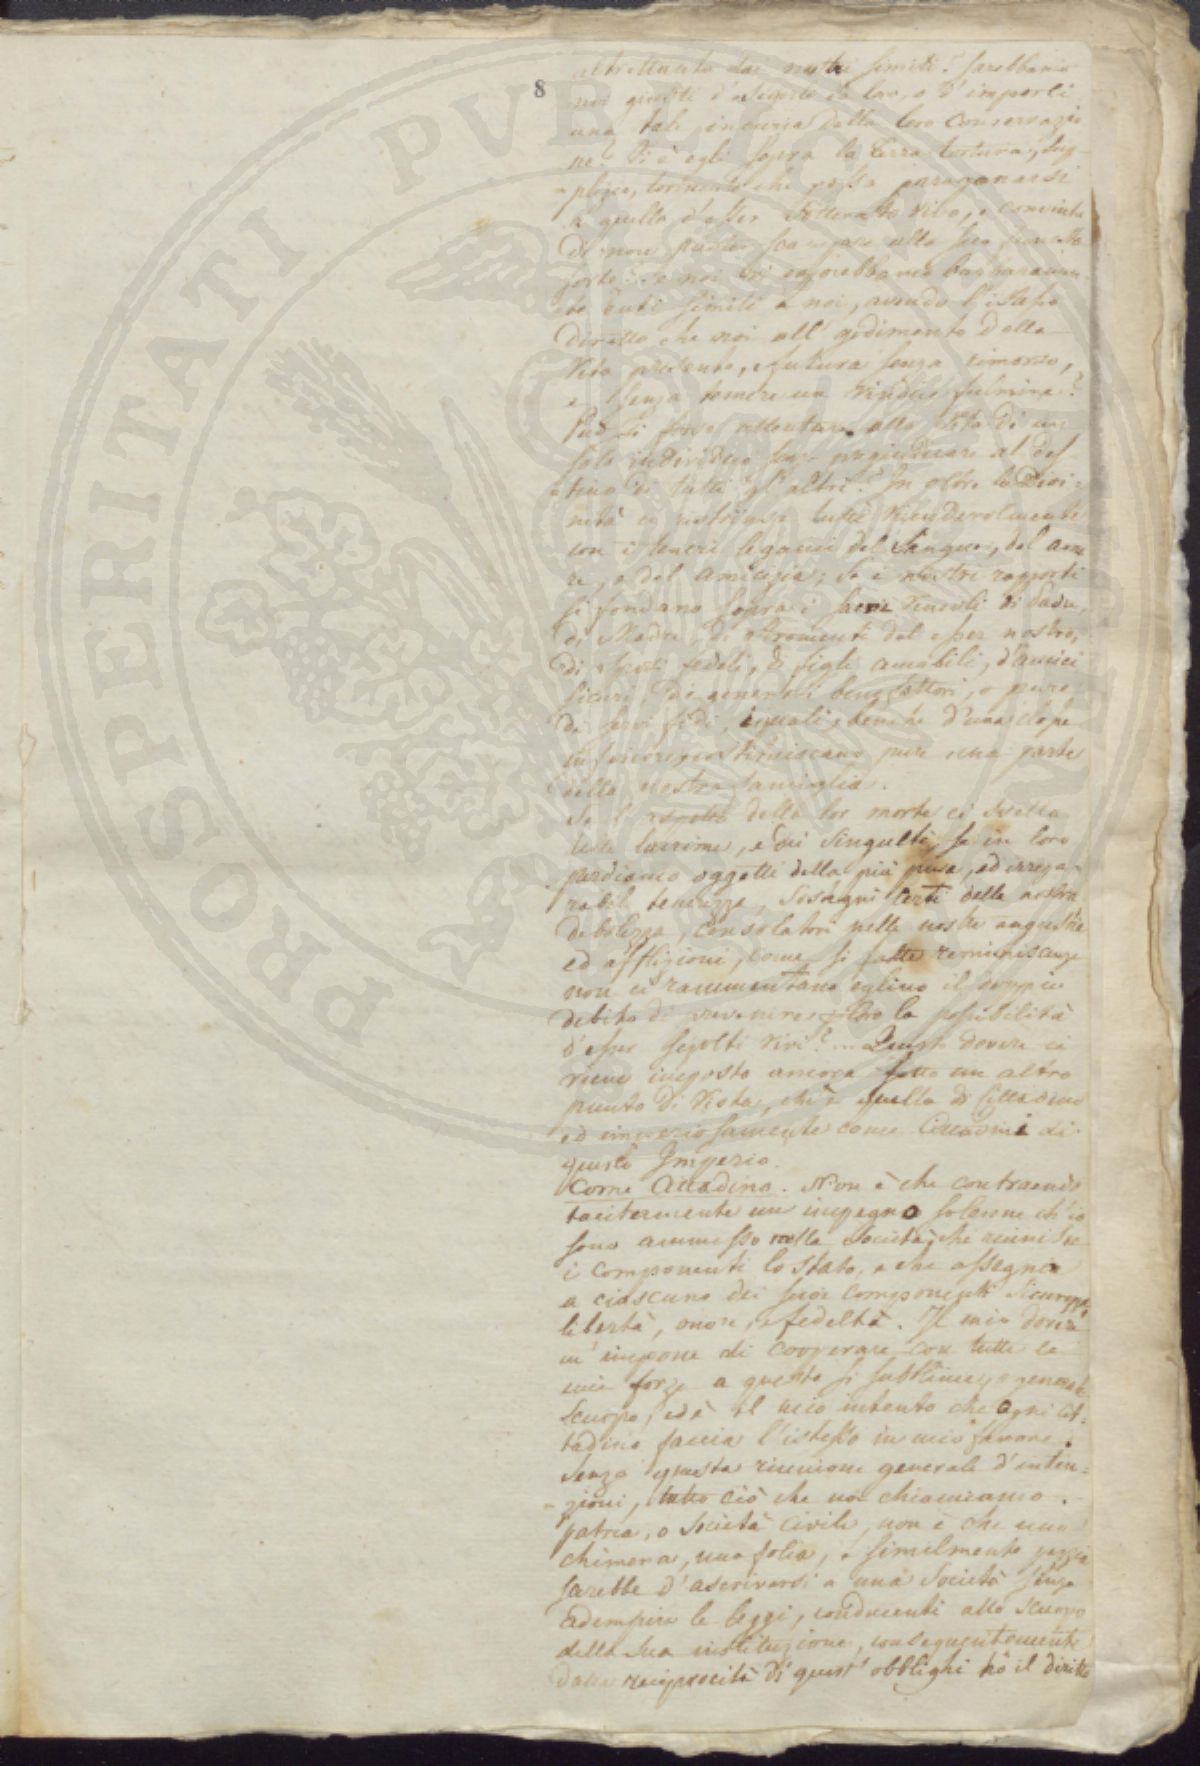 8
altrettanto dai nostri simili? Sarebbamo
noi giusti d'esigerlo da loro, o d'imporli
una tale incuria della loro conservazio
ne? Vi è egli sopra la terra tortura, sup-
plizio, tormento che possa paragonarsi
a quello d'esser sotterrato vivo, e convinto
di non poter scappare alla sua funesta
sorte? e noi vi
te enti simili a noi, avendo l'istesso
diritto che noi all' godimento della
vita presente, e futura senza rimorso,
e senza temere un vindice fulmine?
Può si forse attentare alla vita di un
solo individuo senza pregiudicare al des
tino di tutti gl'altri? In oltre la Divi=
nità ci ristringe tutti vicendevolmente
con i teneri legami del sangue, del amo
re, e del amicizia; se i nostri rapporti
si fondano sopra i sacri di Padre,
di Madre, di stromenti del esser nostro,
di sposi fedeli, di figli amabili, d'amici
sicuri, di generosi benefattori, o pure
di servi fidi, iquali, benche d'una classe
inferiore costituiscano pure una parte
della nostra famiglia.
Se l'aspetto della lor morte ci svella
delle lacrime, e dei singulti, se in loro
perdiamo oggetti della più pura, ed irrepa-
rabil tenerezza, sostegni certi della nostra
debolezza, consolatori nelle nostre angustie
ed afflizioni, come si fatte reminiscenze
non ci rammentano eglino il doppio
debito di prevenire loro la possibilità
d'esser sepolti vivi?... Questo dovere ci
viene imposto ancora sotto un altro
punto di vista, ch'è quello di Cittadino
ed imperiosamente come Cittadini di
questo Imperio.
Come Cittadino. Non è che contraendo
tacitermente un impegno solenne ch'io
sono ammesso nella società, che riunisce
i componenti lo stato, e che assegna
a ciascuno dei suoi componenti sicurezza,
libertà, onore, e fedeltà. Il mio dovere
m'impone di cooperare con tutte le
mie forze a questo si sublime, e generale
scuopo, ed è il mio intento che ogni cit=
tadino faccia l'istesso in mio favore.
Senza questa riunione generale d'inten=
zioni, tutto ciò che noi chiamiamo
patria, o società civile, non è che una
chimera, una folia, e similmente pazzia
sarebbe d'ascriversi a una società senza
adempire le leggi, conducenti allo scuopo
della sua instituzione, conseguentemente
dalla reciprocità di quest' obblighi hò il diritto
PROSPERITATI PUBLICAE